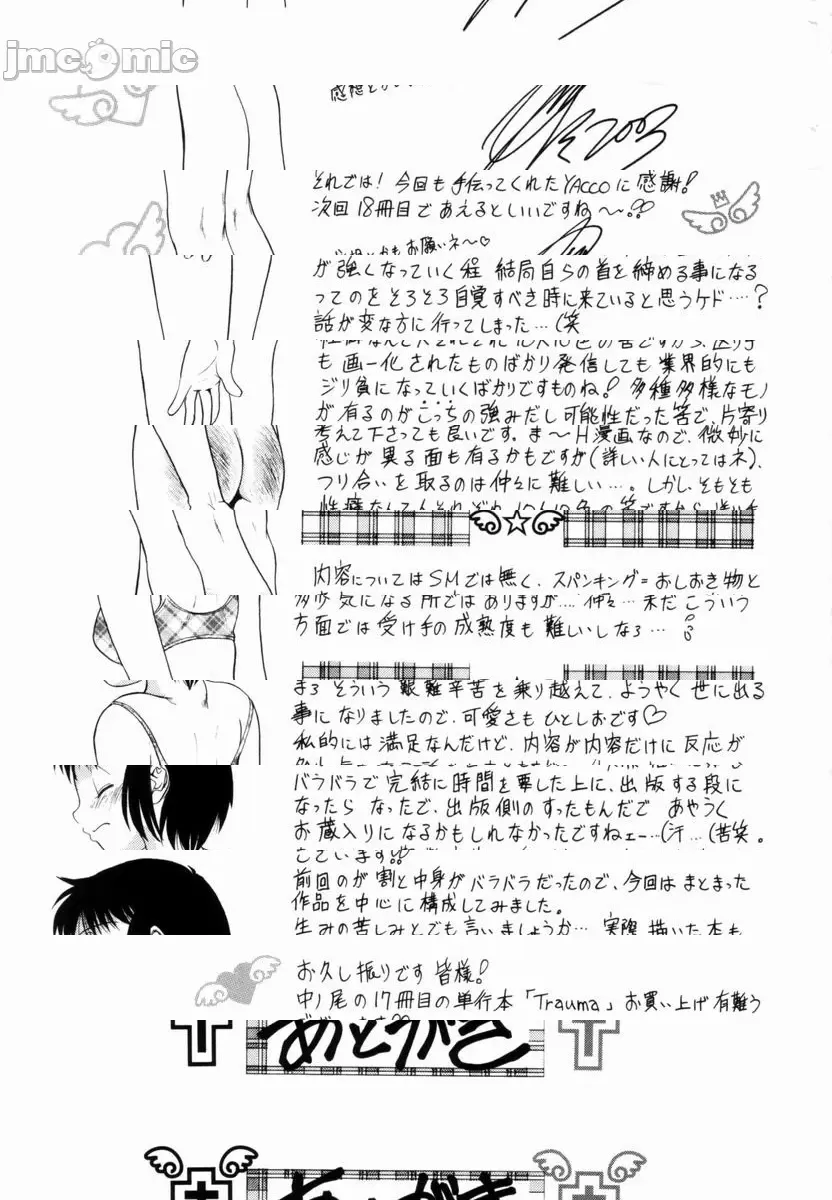 jmcomic
感想とか
2003
それでは!今回も手伝ってくれたYACCOに感謝!
次回18冊目であえるといいですね〜!!
お願いネ〜♡
が強くなっていく程 結局自らの首を締める事になる
ってのをそろそろ自覚すべき時に来ていると思うケド…?
話が変な方に行ってしまった…(笑
も画一化されたものばかり発信しても業界的にも
ジリ貧になっていくばかりですものね!多種多様なモノ
が有るのがこっちの強みだし可能性だった筈で、片寄り
考えて下さっても良いです。ま〜H漫画なので、微妙に
感じが異る面も有るかもですが(詳しい人にとってはネ)、
つり合いを取るのは仲々に難しい…。しかし、そもそも
内容についてはSMでは無く、スパンキング=おしおき物と
多少気になる所ではありますが…。仲々…未だこういう
方面では受け手の成熟度も難しいしなぁ…
まぁそういう艱難辛苦を乗り越えて、ようやく世に出る
事になりましたので、可愛さもひとしおです♡
私的には満足なんだけど、内容が内容だけに反応が
バラバラで完結に時間を要した上に、出版する段に
なったらなったで、出版側のすったもんだであやうく
お蔵入りになるかもしれなかったですねェー…(汗…(苦笑。
前回のが割と中身がバラバラだったので、今回はまとまった
作品を中心に構成してみました。
生みの苦しみとでも言いましょうか…実際描いた本も
お久し振りです皆様!
中ノ尾の17冊目の単行本「Trauma」お買い上げ有難う
あとがき